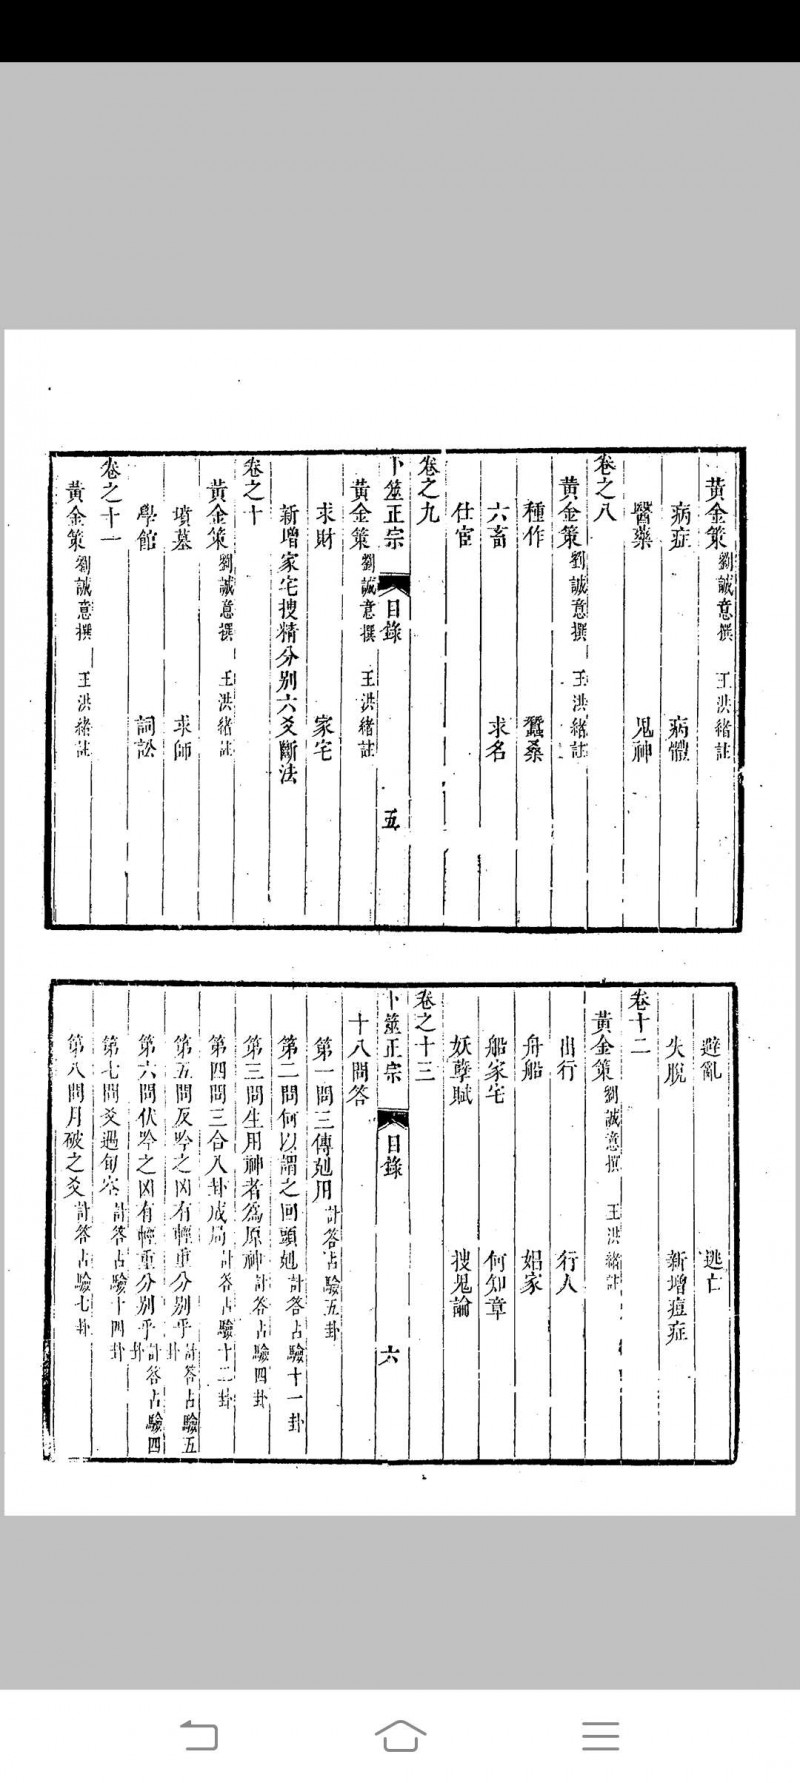 黃金策 劉誠意撰 王洪緒註
病症 病體
醫藥 鬼神
卷之八
黃金策 劉誠意撰 王洪緒註
種作 蠶桑
六畜 求名
仕宦
卷之九
卜筮正宗 目錄 五
黃金策 劉誠意撰 王洪緒註
求財 家宅
新增家宅搜精分别六爻斷法
卷之十
黃金策 劉誠意撰 王洪緒註
墳墓 求師
學館 詞訟
卷之十一
黃金策 劉誠意撰 王洪緒註
避亂 逃亡
失脫 新增痘症
卷十二
黃金策 劉誠意撰 王洪緒註
出行 行人
舟船 娼家
船家宅 何知章
妖孽賦 搜鬼論
卷之十三
卜筮正宗 目錄 六
十八問答
第一問三傳剋用 計答占驗五卦
第二問何以謂之回頭剋 計答占驗十一卦
第三問生用神者為原神 計答占驗四卦
第四問三合八卦成局 計答占驗十二卦
第五問反吟之凶有輕重分别乎 計答占驗五卦
第六問伏吟之凶有輕重分别乎 計答占驗四卦
第七問爻遇旬空 計答占驗十四卦
第八問月破之爻 計答占驗七卦